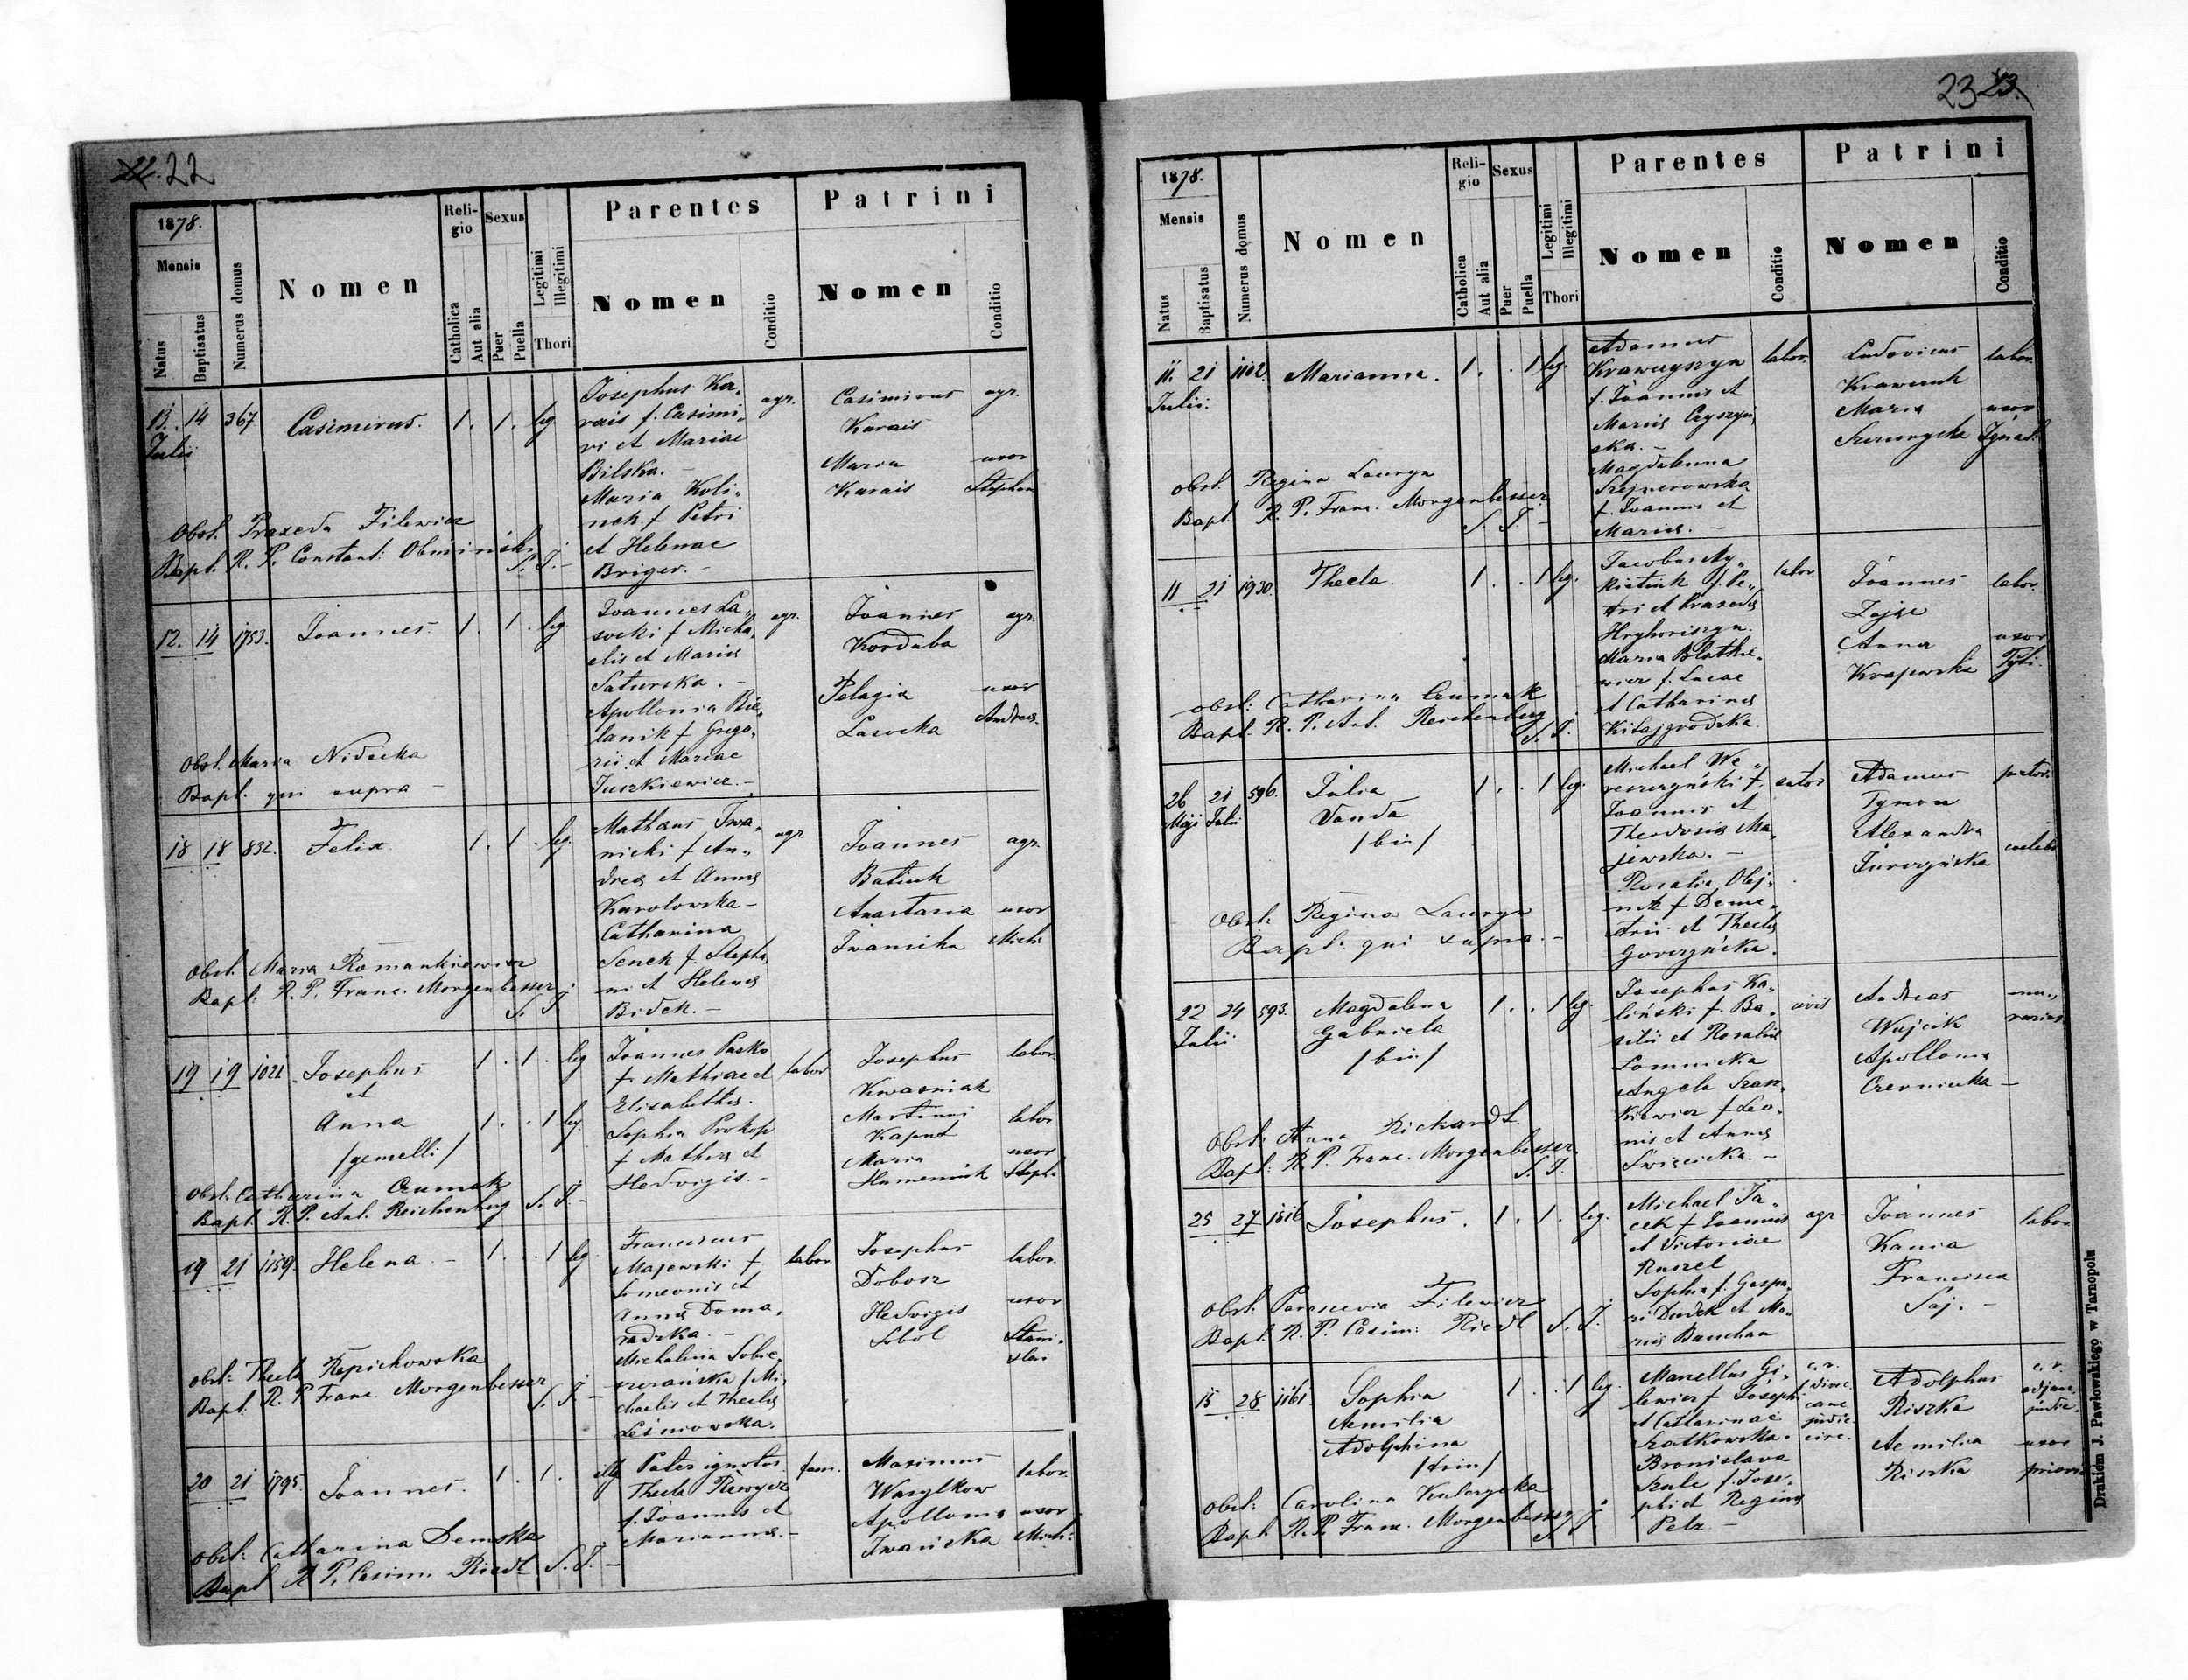 22
1878.
Mensis
Natus
Baptisatus
Numerus domus
Nomen
Religio
Catholica
Aut alia
Sexus
Puer
Puella
Legitimi
Illegitimi
Thori
Parentes
Nomen
Conditio
Patrini
Nomen
Conditio
13. 14 367 Casimirus. 1. 1. leg
Julii
Josephus Ka„
rais f. Casimi„
ri et Mariae
Bilska. –
Maria Koli„
nek f. Petri
et Helenae
Briger. –
agr.
Casimirus agr.
Karais
Maria uxor
Karais Stephan
Obst. Praxeda Filewicz
Bapt. R. P. Constant: Obmiński
S. J. –
12. 14 1753. Joannes. 1. 1. leg
Joannes La„
socki f. Micha„
elis et Mariae
Saturska. –
Apollonia Bie„
lanik f. Grego„
rii et Mariae
Juszkiewicz. –
agr.
Joannes agr.
Korduba
Pelagia uxor
Lasocka Andreae.
Obst. Maria Nidecka
Bapt. qui supra –
18 18 832. Felix 1. 1. leg.
Mathaus Iwa„
nicki f. An„
dreae et Annae
Karolowska –
Catharina
Senek f. Stepha„
ni et Helenae
Bidek. –
agr.
Joannes agr.
Batiuk
Anastasia uxor
Iwanicka Mich:
Obst. Maria Romankiewicz
Bapt: R. P. Franc. Morgenbesser
S. J.
19 19 1022 Josephus 1. 1. leg
et
Anna 1. . 1 leg.
/gemelli/
Joannes Pasko
f. Mathiae et
Elisabethae.
Sophia Prokop
f. Mathiae et
Hedvigis. –
labor
Josephus labor.
Kwasniak
Martinus labor
Kaput
Maria uxor
Humeniuk Steph:
Obst. Catharina Czumak
Bapt. R. P. Ant. Reichenberg S. J. –
19 21 1159. Helena. – 1. . 1 leg
Franciscus
Majewski f.
Simeonis et
Annae Doma„
radzka. –
Michalina Sobie„
szczańska f. Mi„
chaelis et Theclae
Leśniowska.
labor.
Josephus labor.
Dobosz
Hedvigis uxor
Sobol Stani„
slai
Obst: Thecla Repichowska
Bapt. R. P. Franc. Morgenbesser
S. J. –
20 21 1795. Joannes. 1. 1. illeg
Pater ignotus
Thecla
f. Joannis et
Mariannae. –
fam.
Maximus labor.
Wasylkow
Apollonia uxor
Iwańska Mich:
Obst: Catharina Demska
Bapt R. P. Casim. Riedl S. J. –
23
1878.
Mensis
Natus
Baptisatus
Numerus domus
Nomen
Religio
Catholica
Aut alia
Sexus
Puer
Puella
Legitimi
Illegitimi
Thori
Parentes
Nomen
Conditio
Patrini
Nomen
Conditio
11. 21 1102. Marianna. 1. . 1 leg.
Julii.
Adamus
Krawczyszyn
f. Joannis et
Mariae Czyszyn„
ska. –
Magdalenna
Szejnerowska
f. Joannis et
Mariae. –
labor.
Ludovicus labor.
Krawczuk
Maria uxor
Ignat:
Obst. Regina Lauryn
Bapt. R. P. Franc. Morgenbesser
S. J. –
11 21 1930. Thecla. 1. . 1 leg.
Jacobus
f. Pe„
tri et Praxedae
Hryhoriszyn.
Maria
f. Lucae
et Catharinae
Kitajgrodska.
labor.
Joannes labor.
Zając
Anna uxor
Krajewska
Obst: Catharina Czumak
Bapt. R. P. Ant. Reichenberg
S. J.
26 21 596. Julia 1. . 1 leg.
Maji Julii Vanda
/bin/
Michael We„
reszczyński f.
Joannis et
Theodosiae Ma„
jewska. –
Rosalia Olej„
nik f. Deme„
trii et Theclae
Goworzyńska.
sutor
Adamus
Tymon
Alexandra caelebs
Jurczyńska
Obst: Regina Lauryn
Bapt. qui supra. –
22 24 593. Magdalena 1. . 1 leg.
Julii Gabriela
/bin/
Josephus Ka„
liński f. Ba„
silii et Rosaliae
Łomnicka
Angela Szan„
kiewicz f. Leo„
nis et Annae
Święcicka. –
civis
Andreas mu„
Wujcik rarius.
Apollonia
Czerniecka –
Obst: Anna Richardt
Bapt: R. P. Franc. Morgenbesser
S. J.
25 27 1516 Josephus. 1. 1. leg.
Michael Ja„
cek f. Joannis
et Victoriae
Ruszel
Sophia f. Gaspa„
ri Dudek et Ma„
riae Banchan
agr.
Joannes labor.
Kania
Francisca
Saj. –
Obst: Parascevia Filewicz
Bapt. R. P. Casim: Riedl S. J.
15 28 1161 Sophia 1. . 1 leg.
Aemilia
Adolphina
/trin/
Marcellus Gi„
lewicz f. Josephi
et Catharinae
Szatkowska.
Bronislava
Szulc f. Jose„
phi et Reginae
Pelz –
c. r.
direc.
canc.
judic.
circ.
Adolphus c. r.
Riszka adjunc.
judic.
Aemilia uxor
Riszka prioris
Obst: Carolina Kulczycka
Bapt. R. P. Franc. Morgenbesser
S. J.
Drukiem J. Pawłowskiego w Tarnopolu